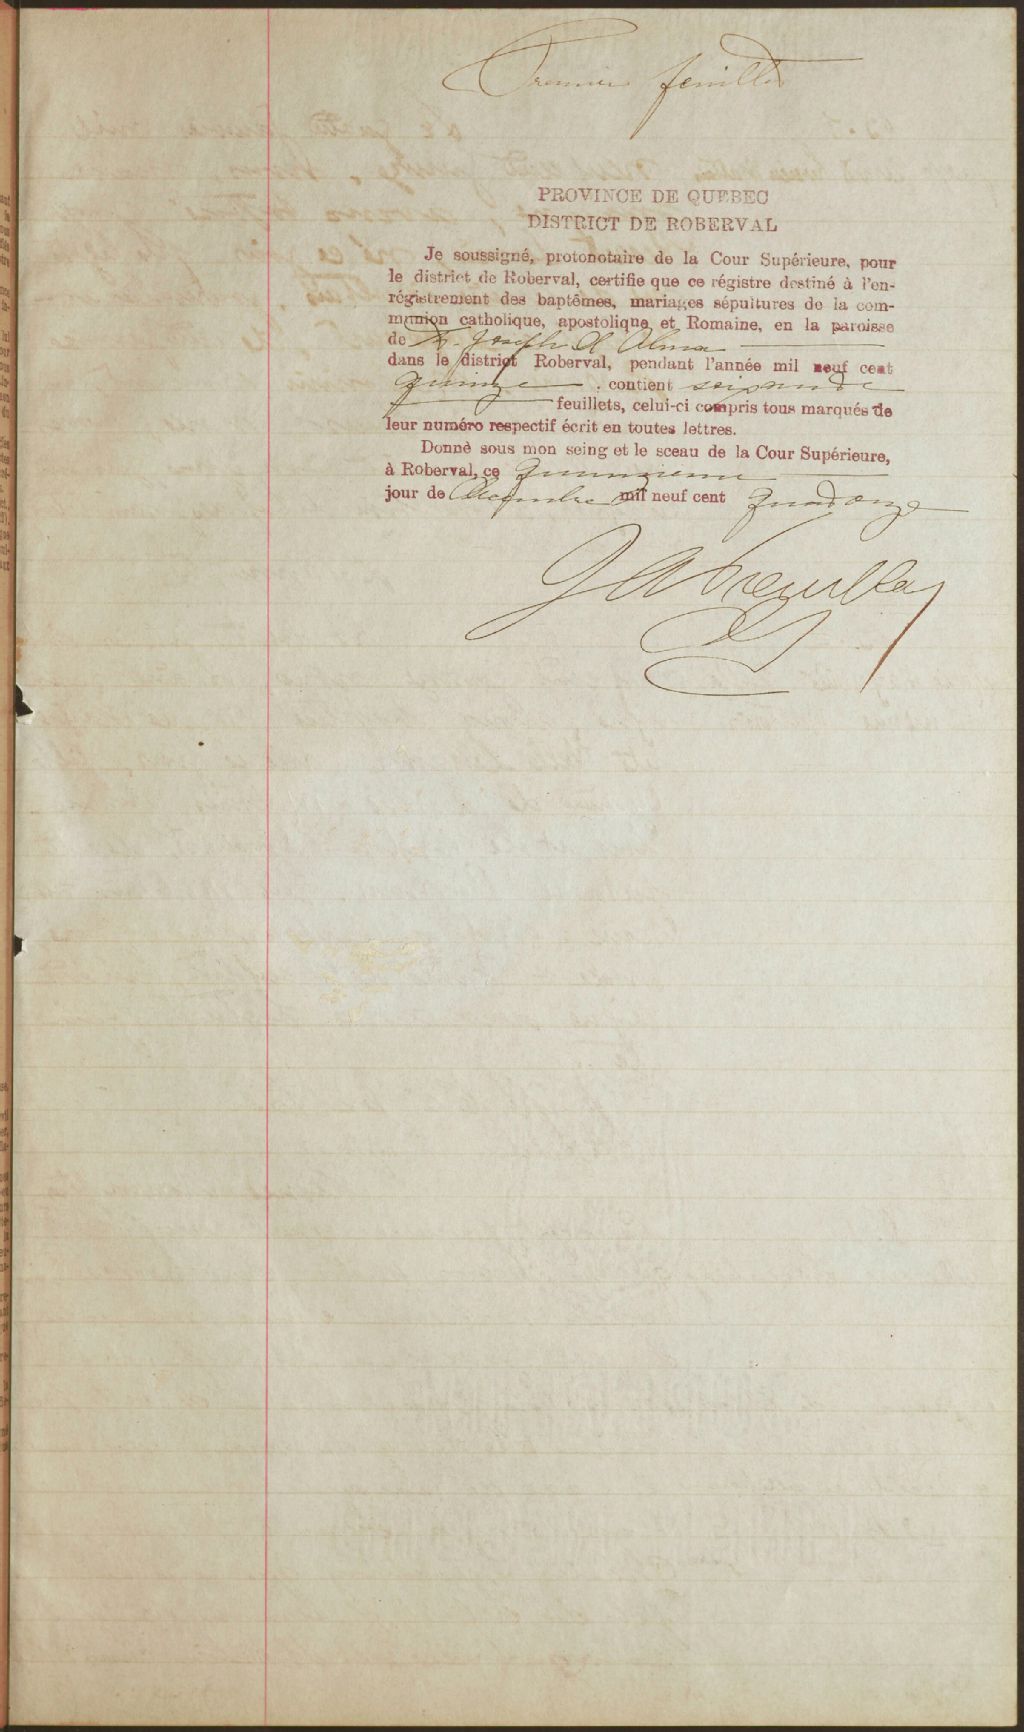 Premier feuillet
PROVINCE DE QUEBEC
DISTRICT DE ROBERVAL
Je soussigné, protonotaire de la Cour Supérieure, pour
le district de Roberval, certifie que ce régistre destiné à l'en-
régistrement des baptêmes, mariages sépultures de la com-
munion catholique, apostolique et Romaine, en la paroisse
de St. Joseph d Alma
dans le district Roberval, pendant l'année mil neuf cent
quinze, contient
feuillets, celui-ci compris tous marqués de
leur numéro respectif écrit en toutes lettres.
Donné sous mon seing et le sceau de la Cour Supérieure,
à Roberval, ce quinzieme
jour de Decembre mil neuf cent quatorze